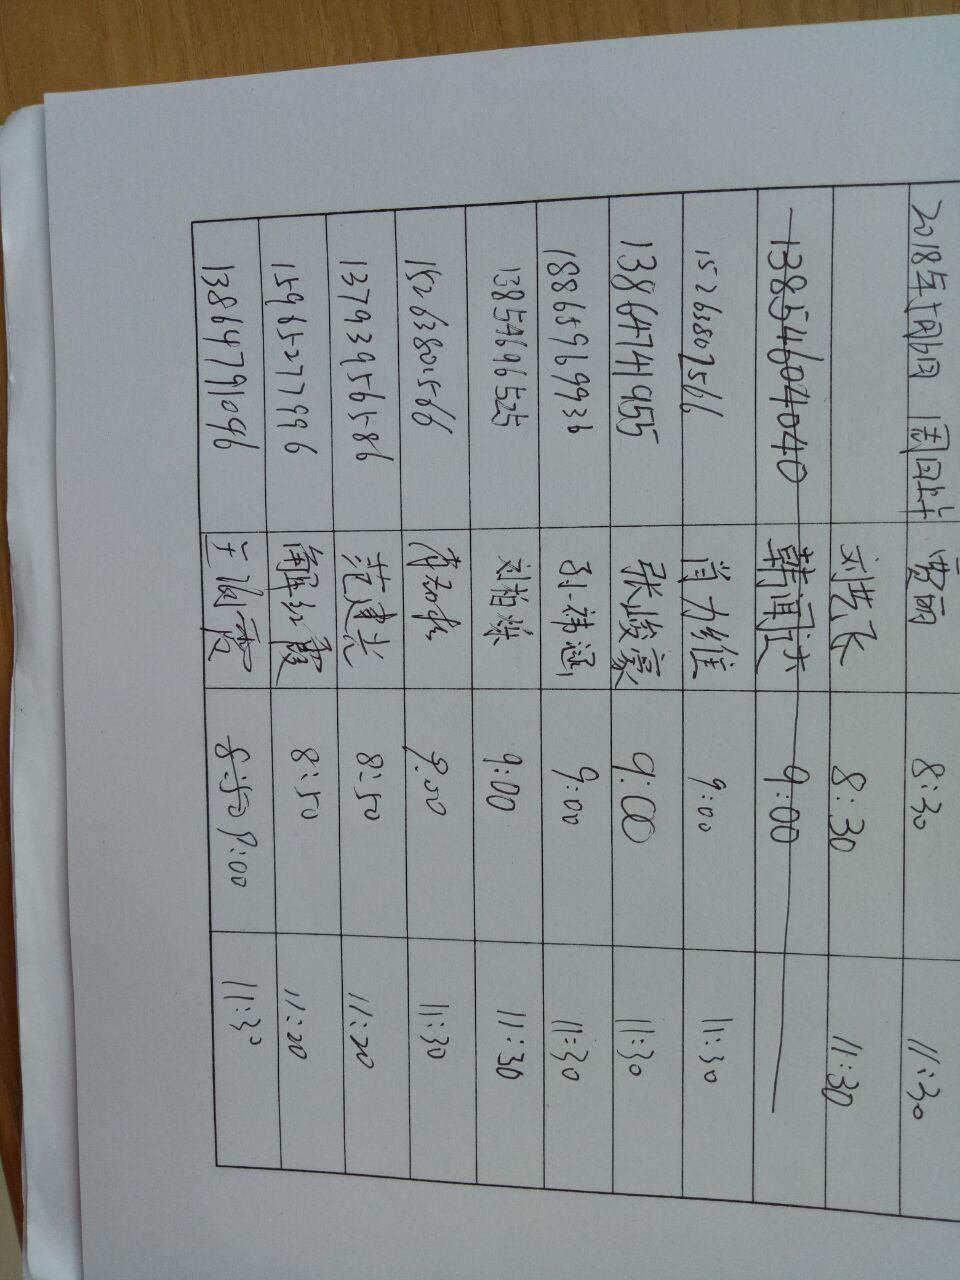 2018年 周四上午 贾丽 8:30 11:30
刘艺飞 8:30 11:30
13854604040 韩闻达 9:00
15263807566 肖力维 9:00 11:30
13864741955 张峻豪 9:00 11:30
18865969936 孙祎涵 9:00 11:30
13854696525 刘柏焕 9:00 11:30
15263801566 9:00 11:30
13793956586 范建光 8:50 11:20
15965277996 解红霞 8:50 11:20
13864791096 8:50 9:00 11:30